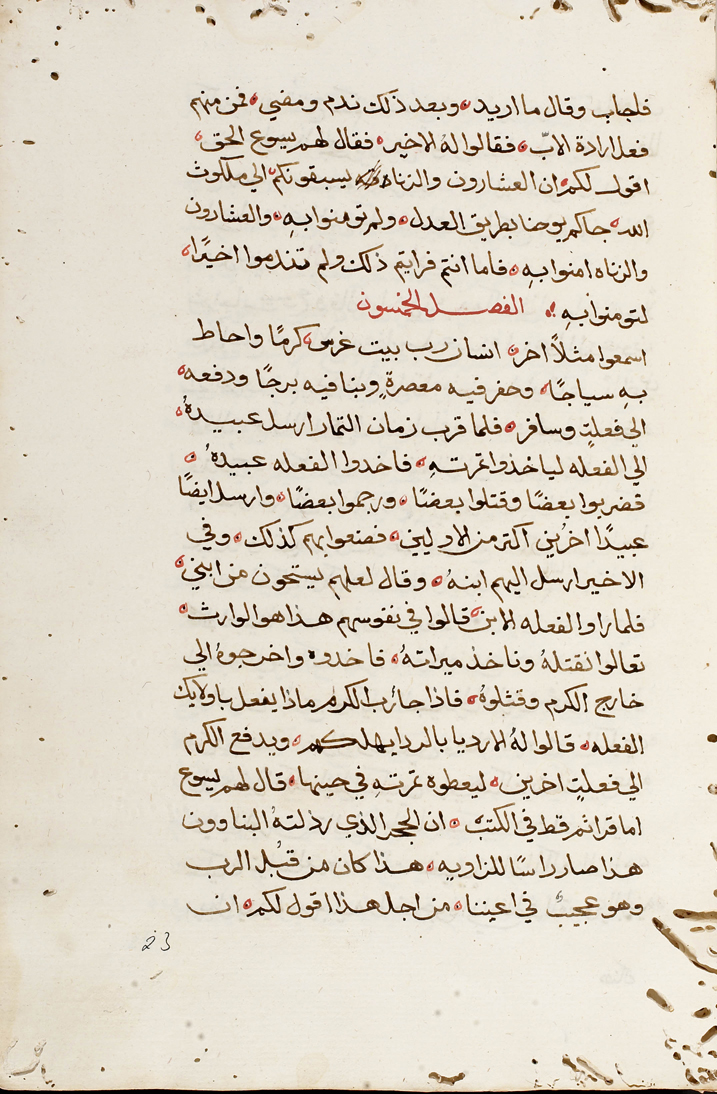 فاجاب وقال ما اريد وبعد ذلك ندم ومضي فمن منهم
فعل ارادة الابّ فقالوا لهُ الاخير فقال لهم يسوع الحق
اقول لكم ان العشارون والزناه يسبقونكم الي ملكوت
الله جاكم يوحنا بطريق العدل ولم تومنوا بهِ والعشارون
والزناه امنوا بهِ فاما انتم فرايتم ذلك ولم تندموا اخيرًا
لتومنوا بهِ الفصل الخمسون
اسمعوا مثلاً اخر انسان رب بيت غرس كرمًا واحاط
بهِ سياجًا وحفر فيه معصرةٍ وبنا فيه برجًا ودفعه
الي فعلتٍ وسافر فلما قرب زمان التمار ارسل عبيدهُ
الي الفعله لياخذوا تمرتهِ فاخدوا الفعله عبيدهُ
فضربوا بعضًا وقتلوا بعضًا ورجموا بعضًا وارسل ايضًا
عبيدًا اخرين اكتر من الاولين فصنعوا بهم كذلك وفي
الاخير ارسل اليهم ابنهُ وقال لعلهم يستحون من ابني
فلما راوا الفعله الابن قالوا في نفوسهم هذا هو الوارث
تعالوا نقتلهُ وناخذ ميراتهُ فاخدوه واخرجوهُ الي
خارج الكرم وقتلوهُ فاذا جا رب الكرم ماذا يفعل باولايك
الفعله قالوا لهُ الارديا بالردا يهلكهم ويدفع الكرم
الي فعلتٍ اخرين ليعطوه تمرتهِ في حينها قال لهم يسوع
اما قراتم قط في الكتب ان الحجر الذي رذلتهُ البناوون
هذا صار راسًا للزاويه هذا كان من قبل الرب
وهو عجيبٌ في اعيننا من اجل هذا اقول لكم ان
23